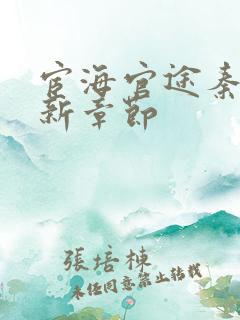 宦海官途秦
新章節
張培棟
未經同意禁止轉載